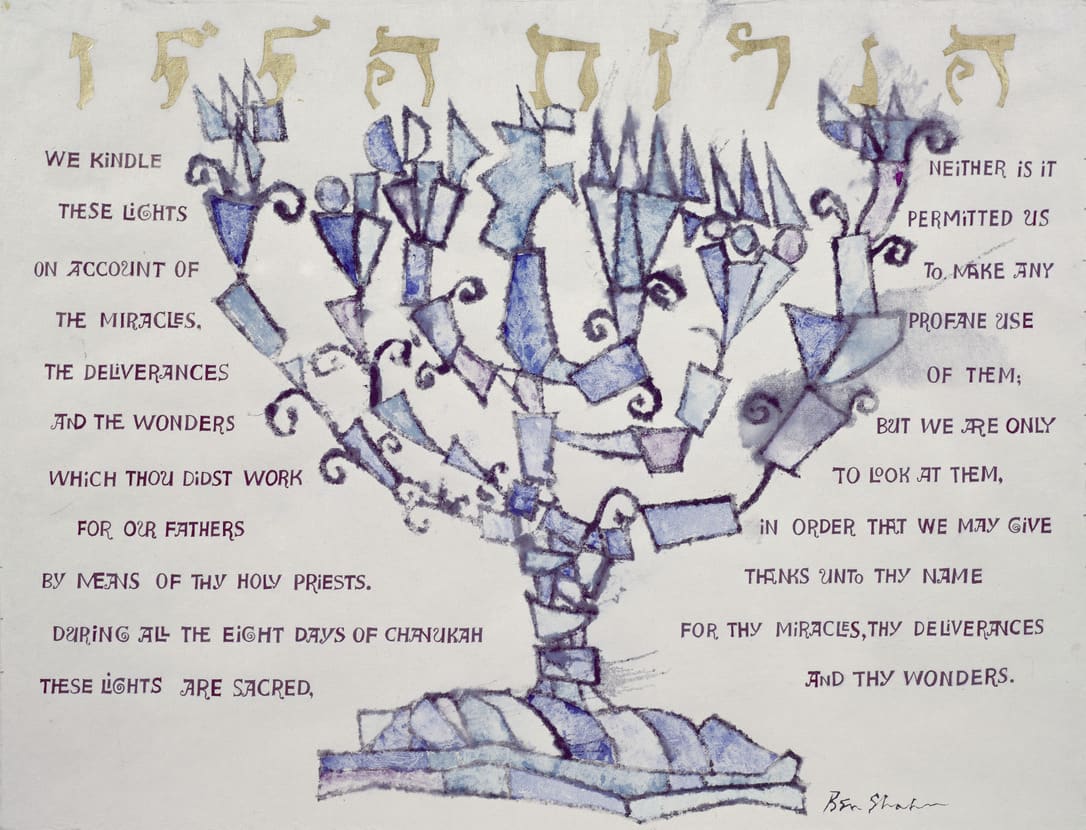 הנרות הללו
WE KINDLE
THESE LIGHTS
ON ACCOUNT OF
THE MIRACLES,
THE DELIVERANCES
AND THE WONDERS
WHICH THOU DIDST WORK
FOR OUR FATHERS
BY MEANS OF THY HOLY PRIESTS.
DURING ALL THE EIGHT DAYS OF CHANUKAH
THESE LIGHTS ARE SACRED,
NEITHER IS IT
PERMITTED US
TO MAKE ANY
PROFANE USE
OF THEM;
BUT WE ARE ONLY
TO LOOK AT THEM,
IN ORDER THAT WE MAY GIVE
THANKS UNTO THY NAME
FOR THY MIRACLES, THY DELIVERANCES
AND THY WONDERS.
Ben Shahn